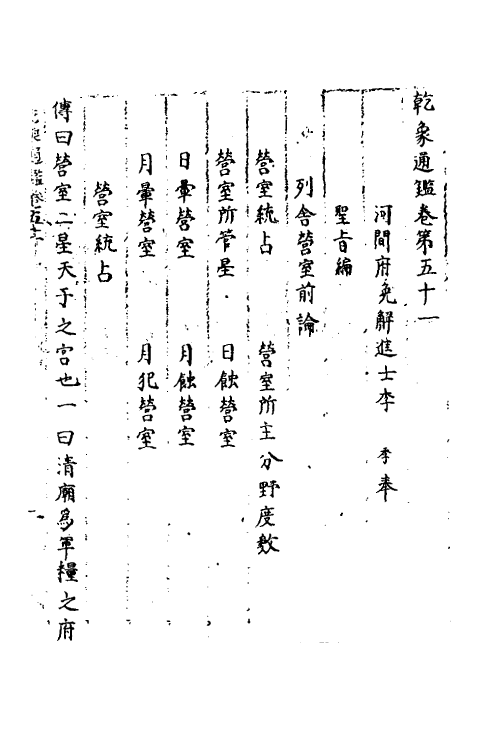 乾象通鑑卷第五十一
河間府免解進士李　季奉
聖旨編
列舍營室前論
營室統占　營室所主分野度數
營室所管星　日蝕營室
日暈營室　月蝕營室
月暈營室　月犯營室
營室統占
傳曰營室二星天子之宮也一曰清廟爲軍糧之府